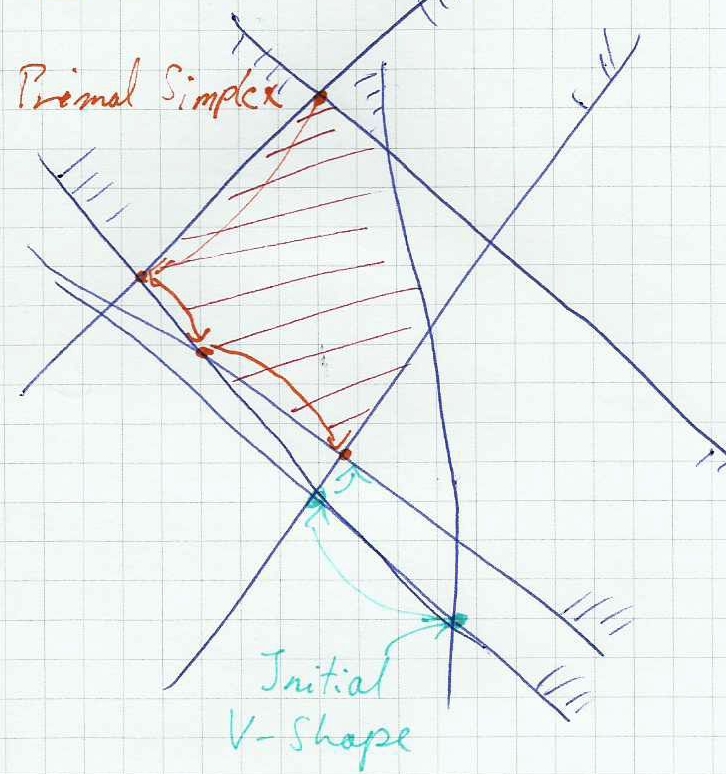 Primal Simplex
Initial
V-Shape